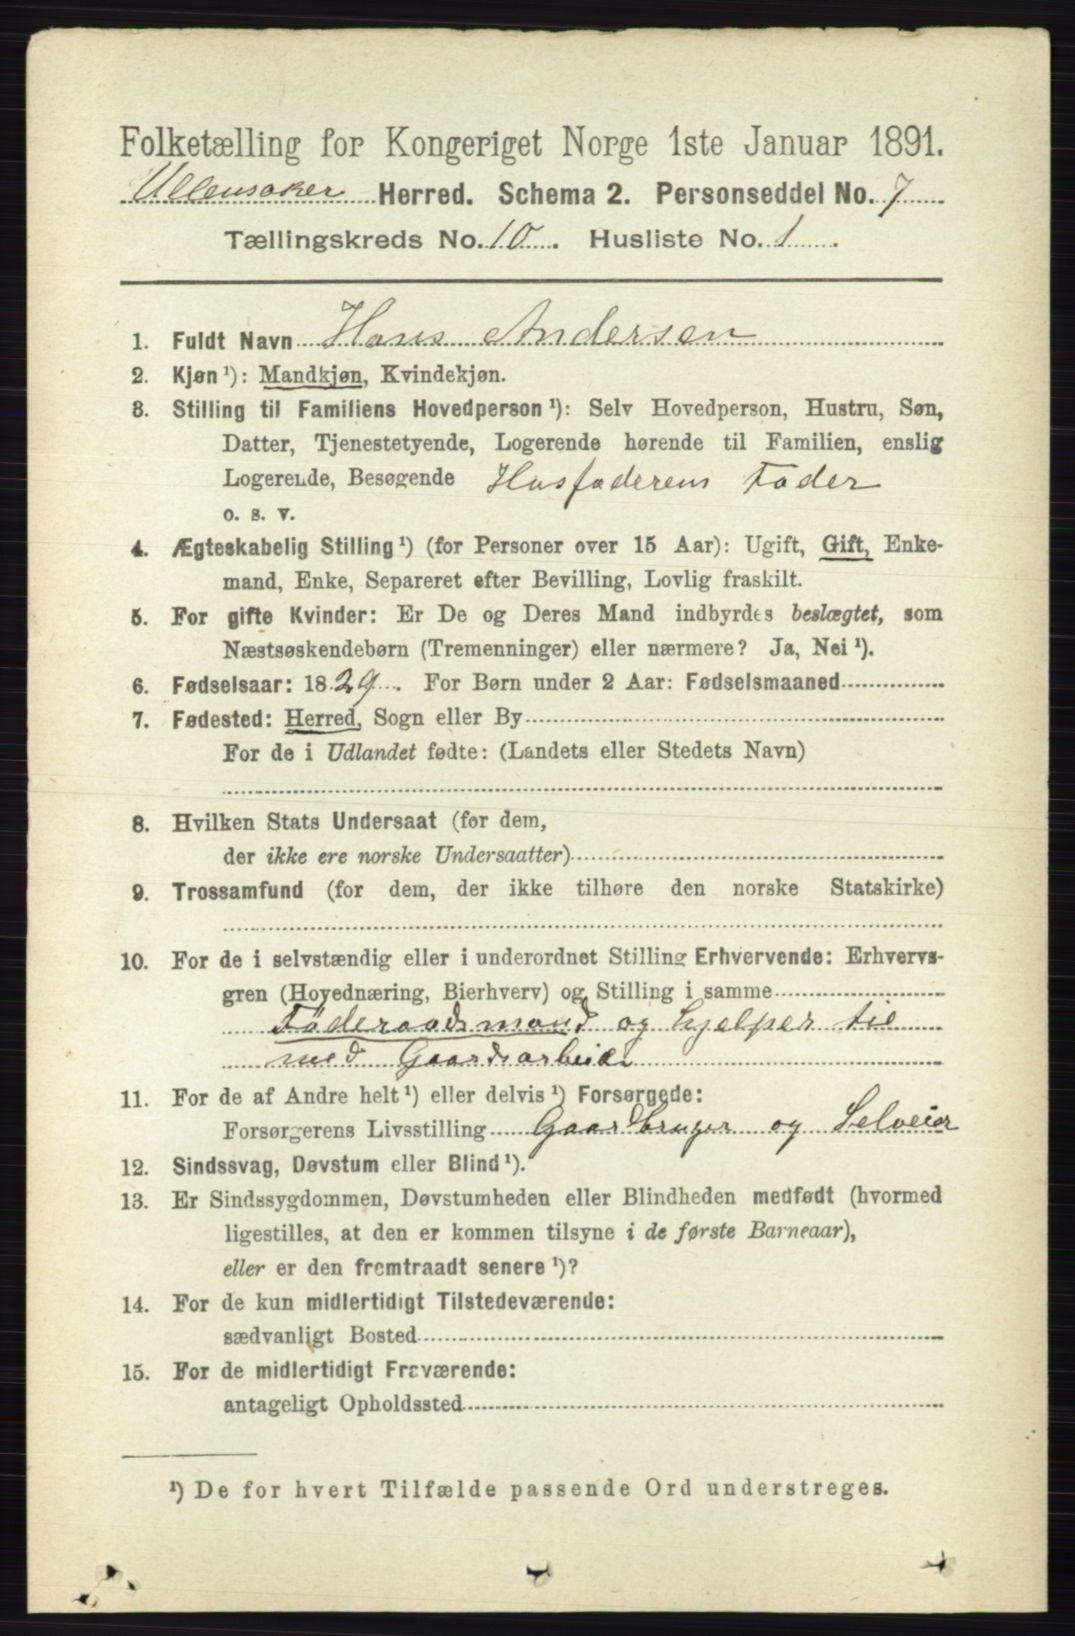 Folketælling for Kongeriget Norge 1ste Januar 1891.
Ullensaker Herred. Schema 2. Personseddel No. 7
Tællingskreds No. 10. Husliste No. 1.
1. Fuldt Navn Hans Andersen
2. Kjøn ¹): Mandkjøn, Kvindekjøn.
3. Stilling til Familiens Hovedperson ¹): Selv Hovedperson, Hustru, Søn,
Datter, Tjenestetyende, Logerende hørende til Familien, enslig
Logerende, Besøgende Husfaderens Fader
o. s. v.
4. Ægteskabelig Stilling ¹) (for Personer over 15 Aar): Ugift, Gift, Enke-
mand, Enke, Separeret efter Bevilling, Lovlig fraskilt.
5. For gifte Kvinder: Er De og Deres Mand indbyrdes beslægtet, som
Næstsøskendebørn (Tremenninger) eller nærmere? Ja, Nei ¹).
6. Fødselsaar: 1829. For Børn under 2 Aar: Fødselsmaaned
7. Fødested: Herred, Sogn eller By
For de i Udlandet fødte: (Landets eller Stedets Navn)
8. Hvilken Stats Undersaat (for dem,
der ikke ere norske Undersaatter)
9. Trossamfund (for dem, der ikke tilhøre den norske Statskirke)
10. For de i selvstændig eller i underordnet Stilling Erhvervende: Erhvervs-
gren (Hovednæring, Bierhverv) og Stilling i samme
Föderaadsmand og hjelper til
med Gaardsarbeide
11. For de af Andre helt ¹) eller delvis ¹) Forsørgede:
Forsørgerens Livsstilling Gaardbruger og Selveier
12. Sindssvag, Døvstum eller Blind ¹).
13. Er Sindssygdommen, Døvstumheden eller Blindheden medfødt (hvormed
ligestilles, at den er kommen tilsyne i de første Barneaar),
eller er den fremtraadt senere ¹)?
14. For de kun midlertidigt Tilstedeværende:
sædvanligt Bosted
15. For de midlertidigt Fraværende:
antageligt Opholdssted
¹) De for hvert Tilfælde passende Ord understreges.